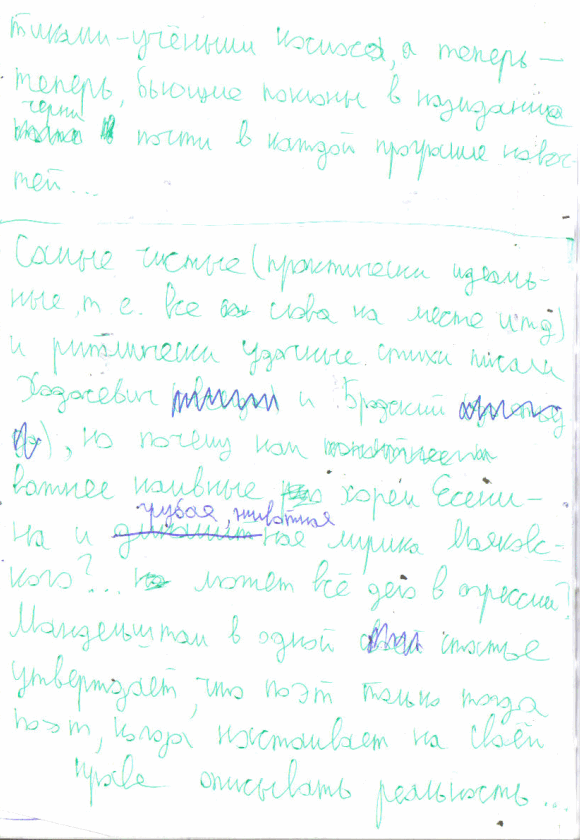 тиками-учёными космоса, а теперь —
теперь, бьющие поклоны в назидание
черни
почти в каждой програме новос-
тей...
Самые чистые (практически идеаль-
ные, т е. все слова на месте итд)
и ритмически удачные стихи писали
Ходасевич и Бродский
), но почему нам
важнее наивные хореи Есени-
грубая, животная
на и ная лирика Маяковс-
кого?... может всё дело в агрессии?
Мандельштам в одной статье
утверждает, что поэт только тогда
поэт, когда настаивает на своём
праве описывать реальность...